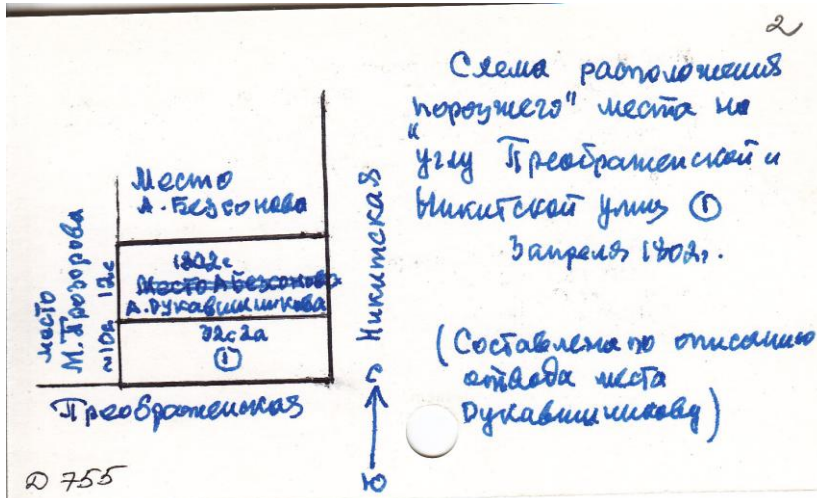 2
Схема расположения
"порозжего" места на
углу Преображенской и
Никитской улиц ①
3 апреля 1802г.
(Составлена по описанию
отвода места
Рукавишникову)
Место
А. Безсонова
1802г
Место А Безсонова
А. Рукавишникова
12с
①
место
М. Прозорова
12с
Преображенская
Никитская
С
Ю
Д 755